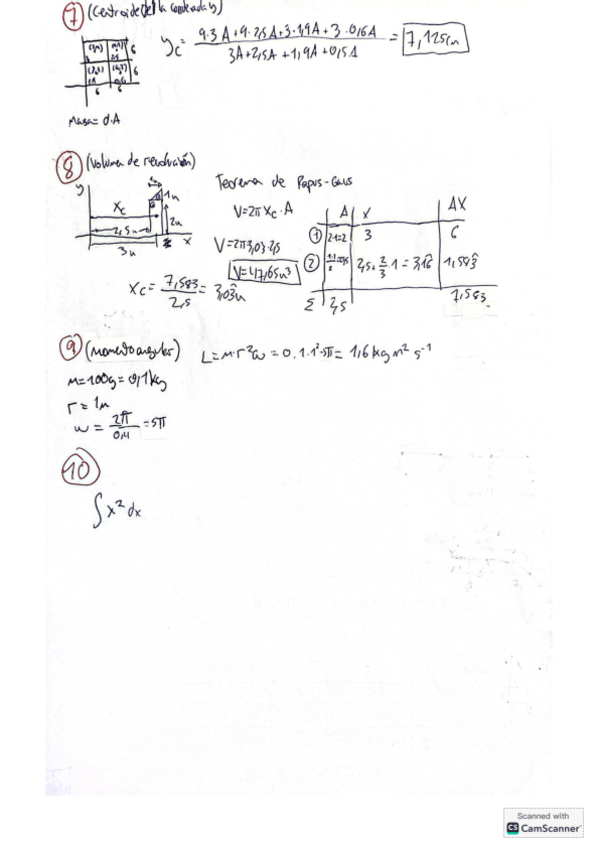 7 (Centroide
y_c = 9·3A+9·2,5A+3·1,9A+3·0,6A / 3A+2,5A+1,9A+0,5A = 7,125cm
6
6
6 6
Masa = d·A
8 (Volumen de revolución)
y
Teorema de Papus-Gaus
1u
X_c
2u
2,5u
x
3u
V=2π X_c · A
V=2π3,03·2,5
V=47,65u³
X_c = 7,583 / 2,5 = 3,03u
A X AX
① 2·1=2 3 6
② 2,5+2/3·1=3,16 1,583
Σ 2,5 7,583
9 (momento angular) L=m·r²ω = 0,1·1²·5π = 1,6 kg m² s⁻¹
M=100g=0,1kg
r=1m
ω = 2π / 0,4 = 5π
10
∫x² dx
Scanned with
CS CamScanner